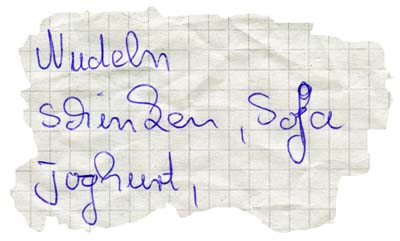 Nudeln
Schinken, Sofa
Joghurt,